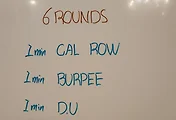 6 ROUNDS
1 min CAL ROW
1 min BURPEE
1 min D.U